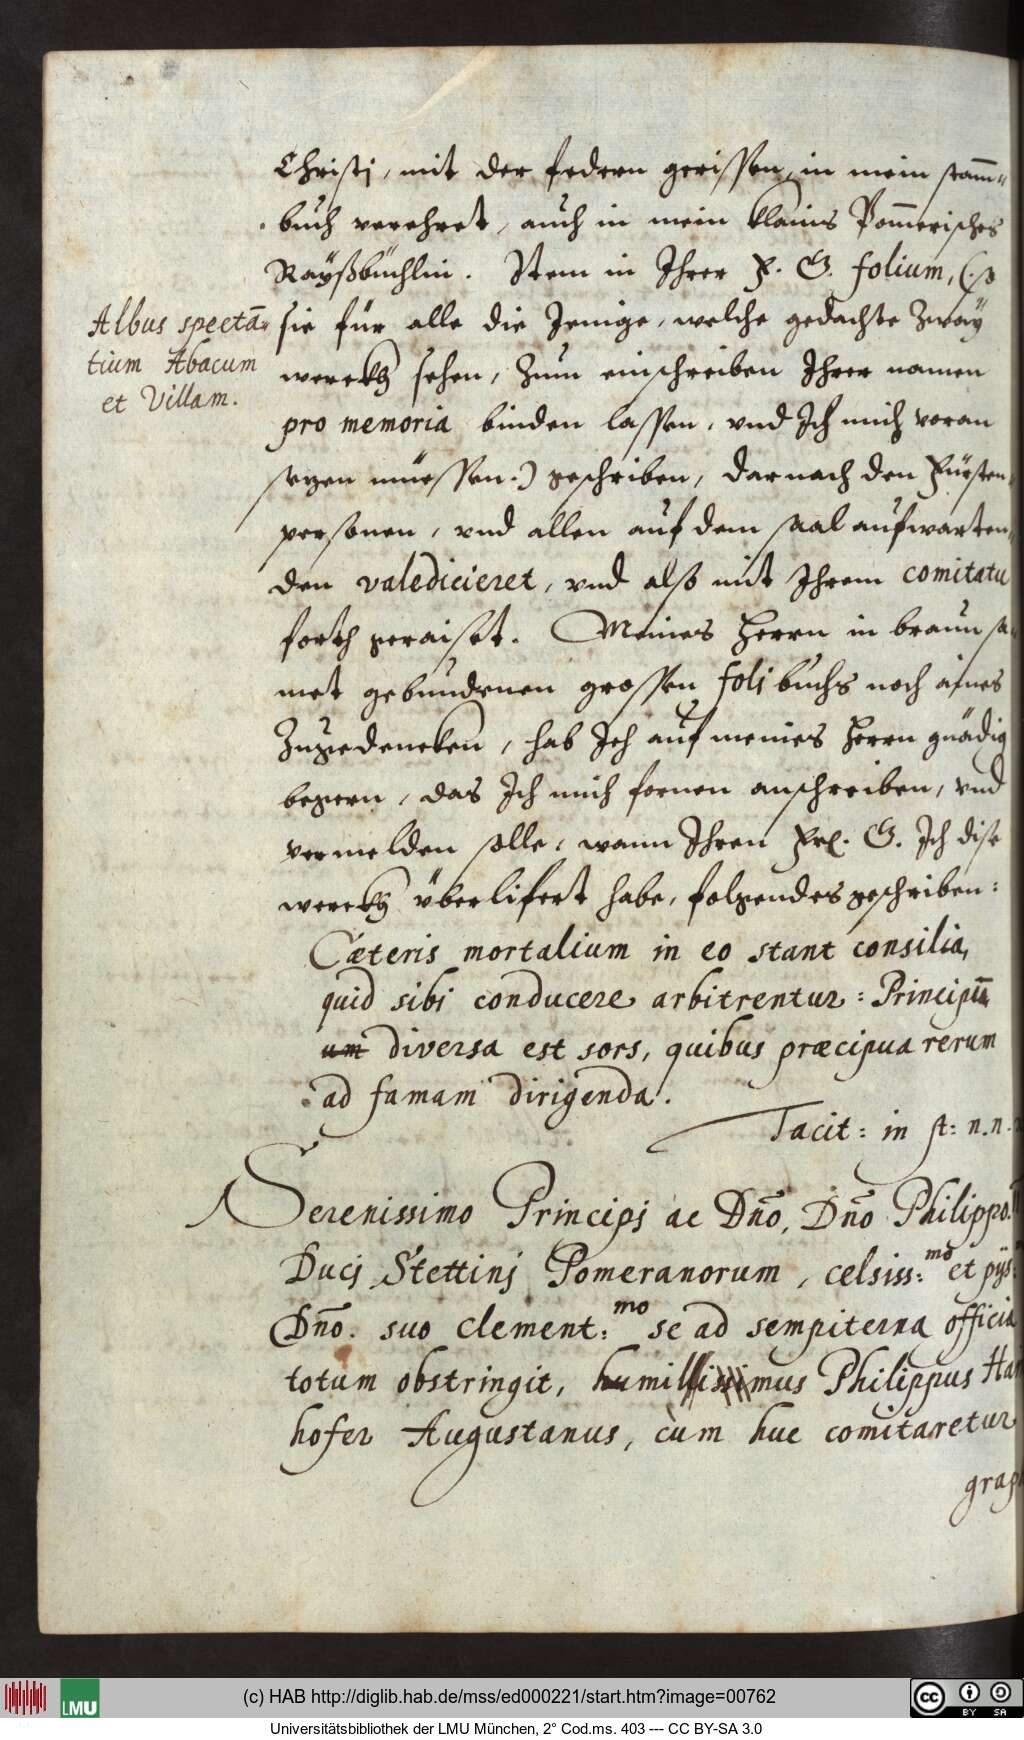 Christj, mit der federn gerissen, in mein stam̄-
buch verehret, auch in mein klains Pom̄erisches
Raÿßbüchlin. Item in Ihrer F. G. folium, (:so
Albus spectā-
tium Abacum
et Villam.
sie für alle die Jenige, welche gedachte Zwaÿ
werckh sehen, Zum einschreiben Ihrer namen
pro memoria binden lassen, vnd Ich mich voran
sezen müessen:) geschriben, darnach den Fürsten-
personen, vnd allen auf dem saal aufwarten-
den valedicieret, vnd also mit Ihrem comitatu
forth geraiset. Meines Herrn in braun sa-
met gebundenen grossen folj buchs noch aines
Zugedencken, hab Ich auf meines Herrn gnädig
begern, das Ich mich fornen anschreiben, vnd
vermelden solle, wann Ihren Frl. G. Ich dise
werckh überlifert habe, folgendes geschriben:
Cæteris mortalium in eo stant consilia,
quid sibi conducere arbitrentur: Principū
um diversa est sors, quibus præcipua rerum
ad famam dirigenda.
Tacit: in st: n.n.
Serenissimo Principj ac Dn̄o, Dn̄o Philippo
Ducj Stettinj Pomeranorum, celsiss:mo et pÿs:
Dn̄o. suo clement:mo se ad sempiterna officia
totum obstringit, humillissimus Philippus Hai
hofer Augustanus, cùm huc comitaretur
grap
(c) HAB http://diglib.hab.de/mss/ed000221/start.htm?image=00762
LMU
cc BY SA
Universitätsbibliothek der LMU München, 2° Cod.ms. 403 --- CC BY-SA 3.0